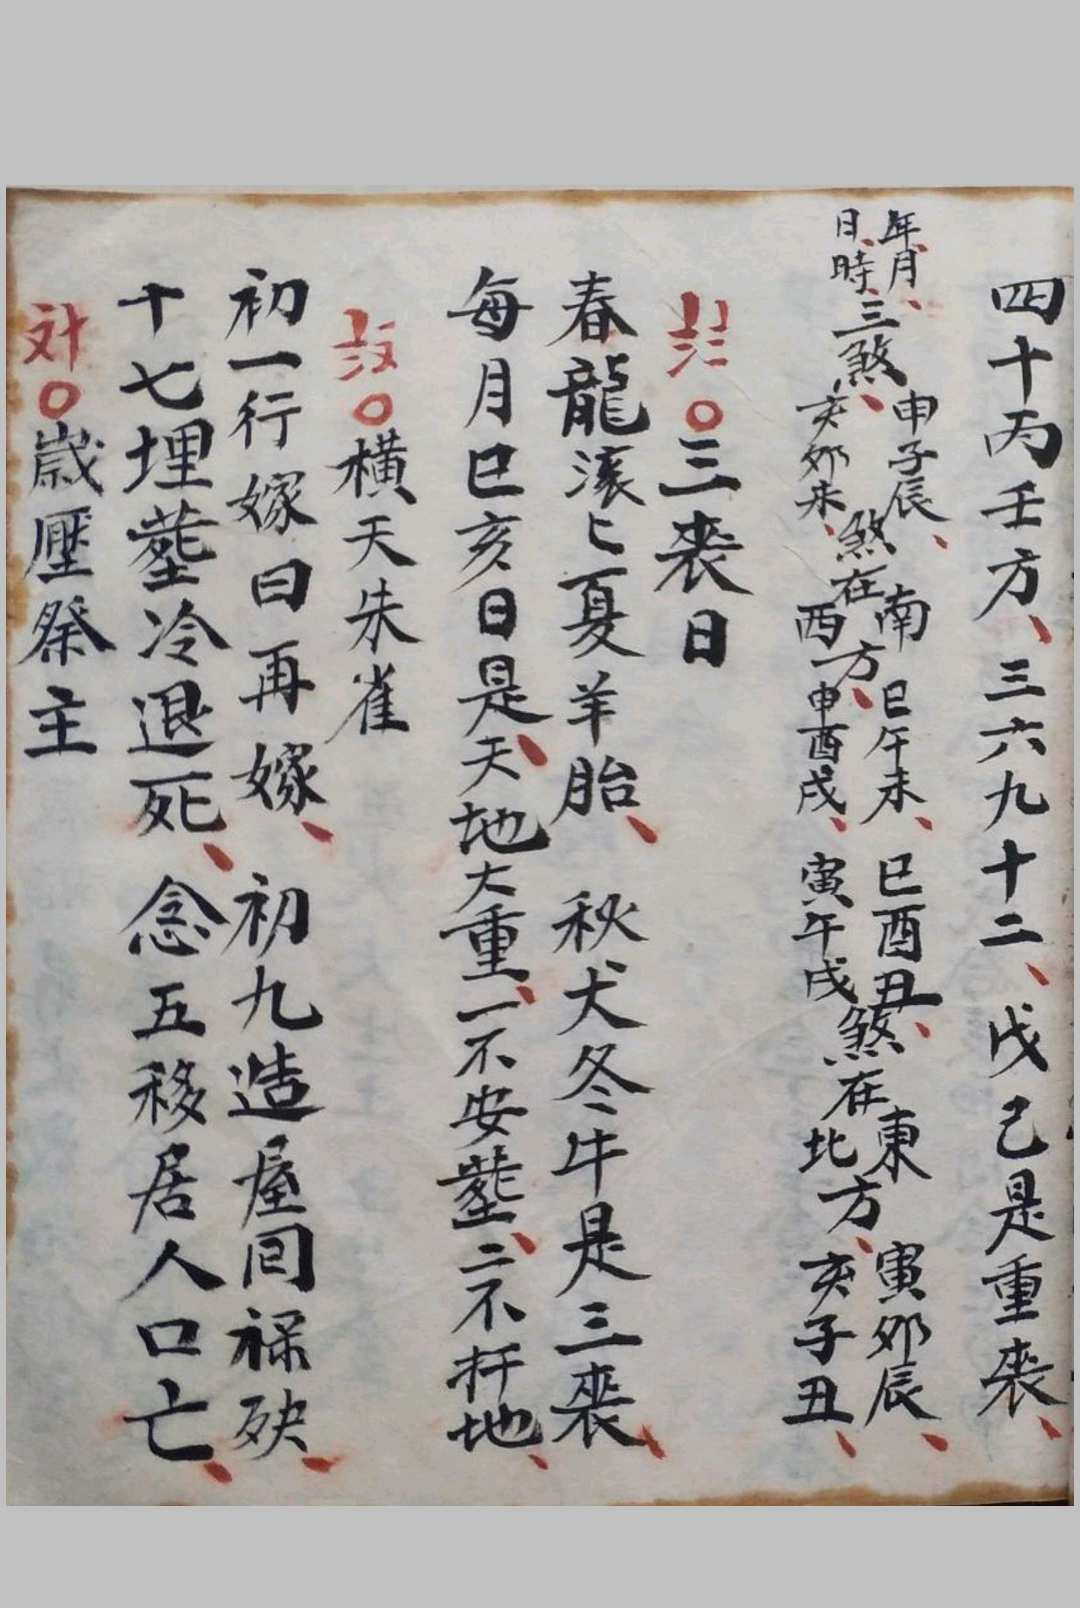 四十丙壬方、三六九十二、戊己是重喪、
年月、日、時、三煞、
申子辰、亥卯未、煞在南西方、巳午未、申酉戌、
巳酉丑、寅午戌煞在東北方、寅卯辰、亥子丑、
〇三喪日
春龍滚匕夏羊胎、秋犬冬牛是三喪、
每月巳亥日是、天地大重、一不安塟、二不扦地、
〇橫天朱雀
初一行嫁曰再嫁、初九造屋囘禄殃、
十七埋塟冷退死、念五移居人口亡、
〇歲壓祭主